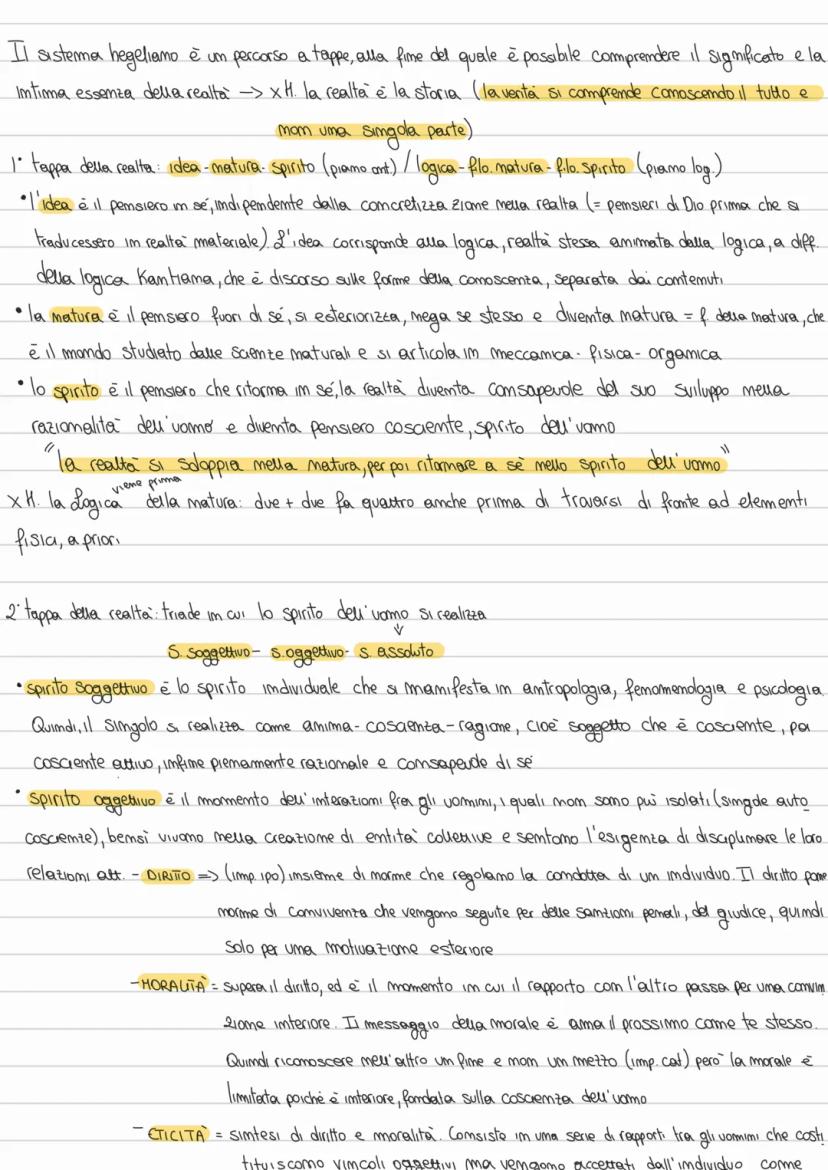 Il sistema hegeliano è un percorso a tappe, alla fine del quale è possibile comprendere il significato e la
intima essenza della realtà -> x H. la realtà è la storia (la verità si comprende conoscendo il tutto e
non una singola parte)
1° tappa della realtà: idea - natura - spirito (piano ont.) / logica - filo. natura - filo. spirito (piano log.)
• l'idea è il pensiero in sé, indipendente dalla concretizzazione nella realtà (= pensieri di Dio prima che si
traducessero in realtà materiale). L'idea corrisponde alla logica, realtà stessa animata dalla logica, a diff.
della logica Kantiana, che è discorso sulle forme della conoscenza, separata dai contenuti
• la natura è il pensiero fuori di sé, si esteriorizza, nega se stesso e diventa natura = f. della natura, che
è il mondo studiato dalle scienze naturali e si articola in meccanica - fisica - organica
• lo spirito è il pensiero che ritorna in sé, la realtà diventa consapevole del suo sviluppo nella
razionalità dell'uomo e diventa pensiero cosciente, spirito dell'uomo
"la realtà si sdoppia nella natura, per poi ritornare a sè nello spirito dell'uomo"
x H. la Logica viene prima della natura: due + due fa quattro anche prima di trovarsi di fronte ad elementi
fisici, a priori
2° tappa della realtà: triade in cui lo spirito dell'uomo si realizza
↓
S. soggettivo - s. oggettivo - s. assoluto
• spirito soggettivo è lo spirito individuale che si manifesta in antropologia, fenomenologia e psicologia
Quindi, il singolo si realizza come anima - coscienza - ragione, cioè soggetto che è cosciente, poi
cosciente attivo, infine pienamente razionale e consapevole di sé
• spirito oggettivo è il momento dell'interazioni fra gli uomini, i quali non sono più isolati (singole auto
coscienze), bensì vivono nella creazione di entità collettive e sentono l'esigenza di disciplinare le loro
relazioni att. - DIRITTO => (imp. ipo) insieme di norme che regolano la condotta di un individuo. Il diritto pone
norme di convivenza che vengono seguite per delle sanzioni penali, del giudice, quindi
solo per una motivazione esteriore
- MORALITÀ = supera il diritto, ed è il momento in cui il rapporto con l'altro passa per una convin
zione interiore. Il messaggio della morale è ama il prossimo come te stesso.
Quindi riconoscere nell'altro un fine e non un mezzo (imp. cat) però la morale è
limitata poiché è interiore, fondata sulla coscienza dell'uomo
- ETICITÀ = sintesi di diritto e moralità. Consiste in una serie di rapporti tra gli uomini che costi
tuiscono vincoli oggettivi ma vengono accettati dall'individuo come